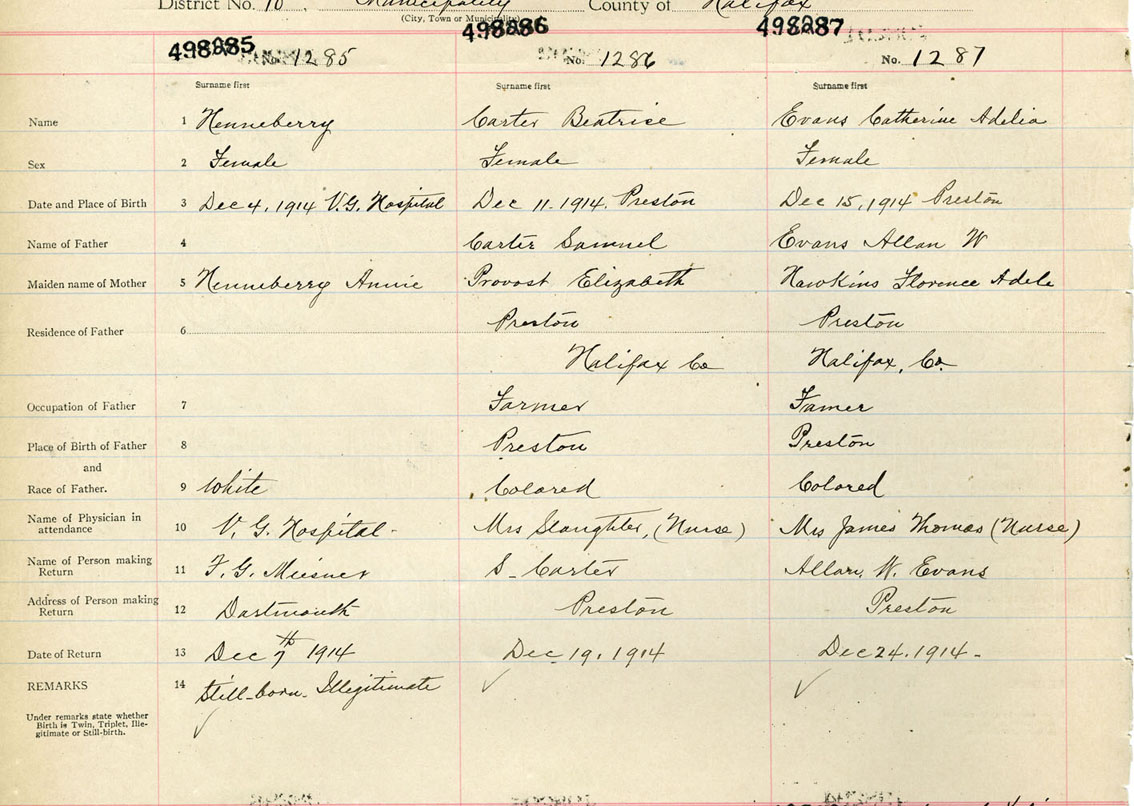 District No. 10, Municipality County of Halifax
(City, Town or Municipality)
498985 498986 498987
No. 1285 No. 1286 No. 1287
Surname first Surname first Surname first
Name 1 Henneberry Carter Beatrise Evans Catherine Adelia
Sex 2 Female Female Female
Date and Place of Birth 3 Dec 4, 1914 V.G. Hospital Dec 11. 1914. Preston Dec 15, 1914 Preston
Name of Father 4 Carter Samuel Evans Allan W
Maiden name of Mother 5 Henneberry Annie Provost Elizabeth Hawkins Florence Adele
Residence of Father 6 Preston Preston
Halifax Co Halifax, Co.
Occupation of Father 7 Farmer Famer
Place of Birth of Father 8 Preston Preston
and
Race of Father. 9 White Colored Colored
Name of Physician in attendance 10 V. G. Hospital- Mrs Slaughter, (Nurse) Mrs James Thomas (Nurse)
Name of Person making Return 11 F. G. Miesner S- Carter Allan. W. Evans
Address of Person making Return 12 Dartmouth Preston Preston
Date of Return 13 Dec 7th 1914 Dec 19, 1914 Dec 24. 1914-
REMARKS 14 Still-born- Illegitimate
Under remarks state whether
Birth is Twin, Triplet, Ille-
gitimate or Still-birth.